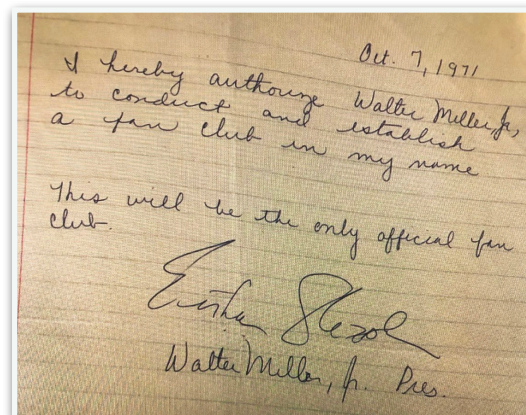 Oct. 7, 1971
I hereby authorize Walter Miller, Jr,
to conduct and establish
a fan club in my name
This will be the only official fan
club.
Walter Miller, Jr. Pres.